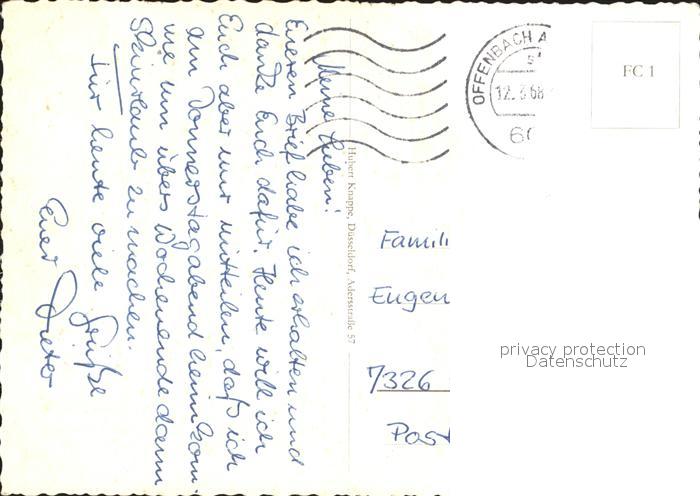 Meine Lieben!
Eueren Brief habe ich erhalten und
danke Euch dafür. Heute will ich
Euch aber nur mitteilen, daß ich
am Donnerstagabend heimkom-
me um übers Wochenende dann
Skiurlaub zu machen.
Für heute viele Grüße
Euer Dieter
Hubert Knappe, Düsseldorf, Adersstraße 57
OFFENBACH A
12.3.68
60
FC 1
Famili
Eugen
7326
Post
privacy protection
Datenschutz